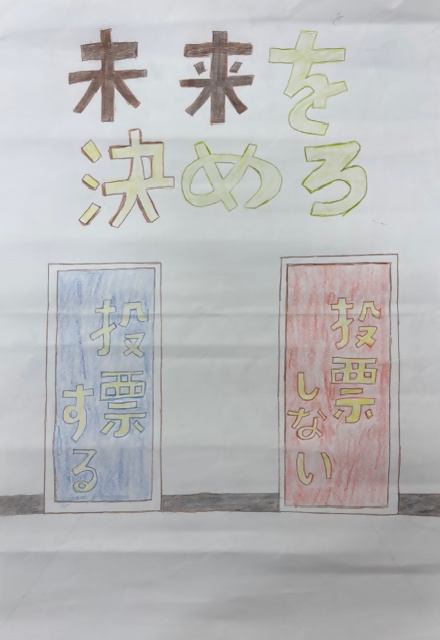 未来を
決めろ
投票
する
投票
しない